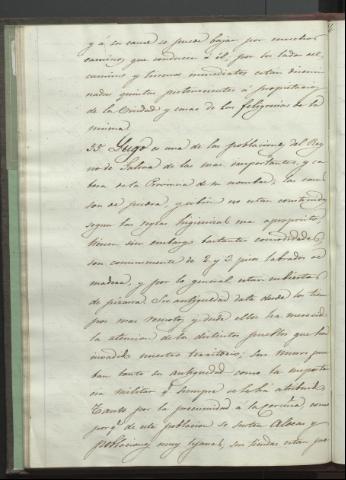 y á su cauce se puede bajar por muchos
caminos que conducen á él, por los lados del
camino y terrenos inmediatos estan disemi-
nadas quintas pertenecientes á propietarios
de la Ciudad y casas de los feligreses de la
misma.
35. Lugo es una de las poblaciones del Rey-
no de Galicia de las mas importantes, y ca-
beza de la Provincia de su nombre; las casas
son de piedra, y si bien no estan construidas
segun las reglas higienicas mas aproposito,
tienen sin embargo bastantes comodidades,
son comunmente de 2 y 3 pisos labrados de
madera, y por lo general estan cubiertas
de pizarra. Su antigüedad data desde los tiem-
pos mas remotos, y desde ellos ha merecido
la atencion de los distintos pueblos que han
invadido nuestro territorio; sus muros prue-
ban tanto su antigüedad como la importan-
cia militar q.e siempre se le ha atribuido.
Tanto por la proximidad á la Coruña, como
por q.e de esta poblacion se surten Aldeas y
Poblaciones muy lejanas, sus tiendas estan pro-